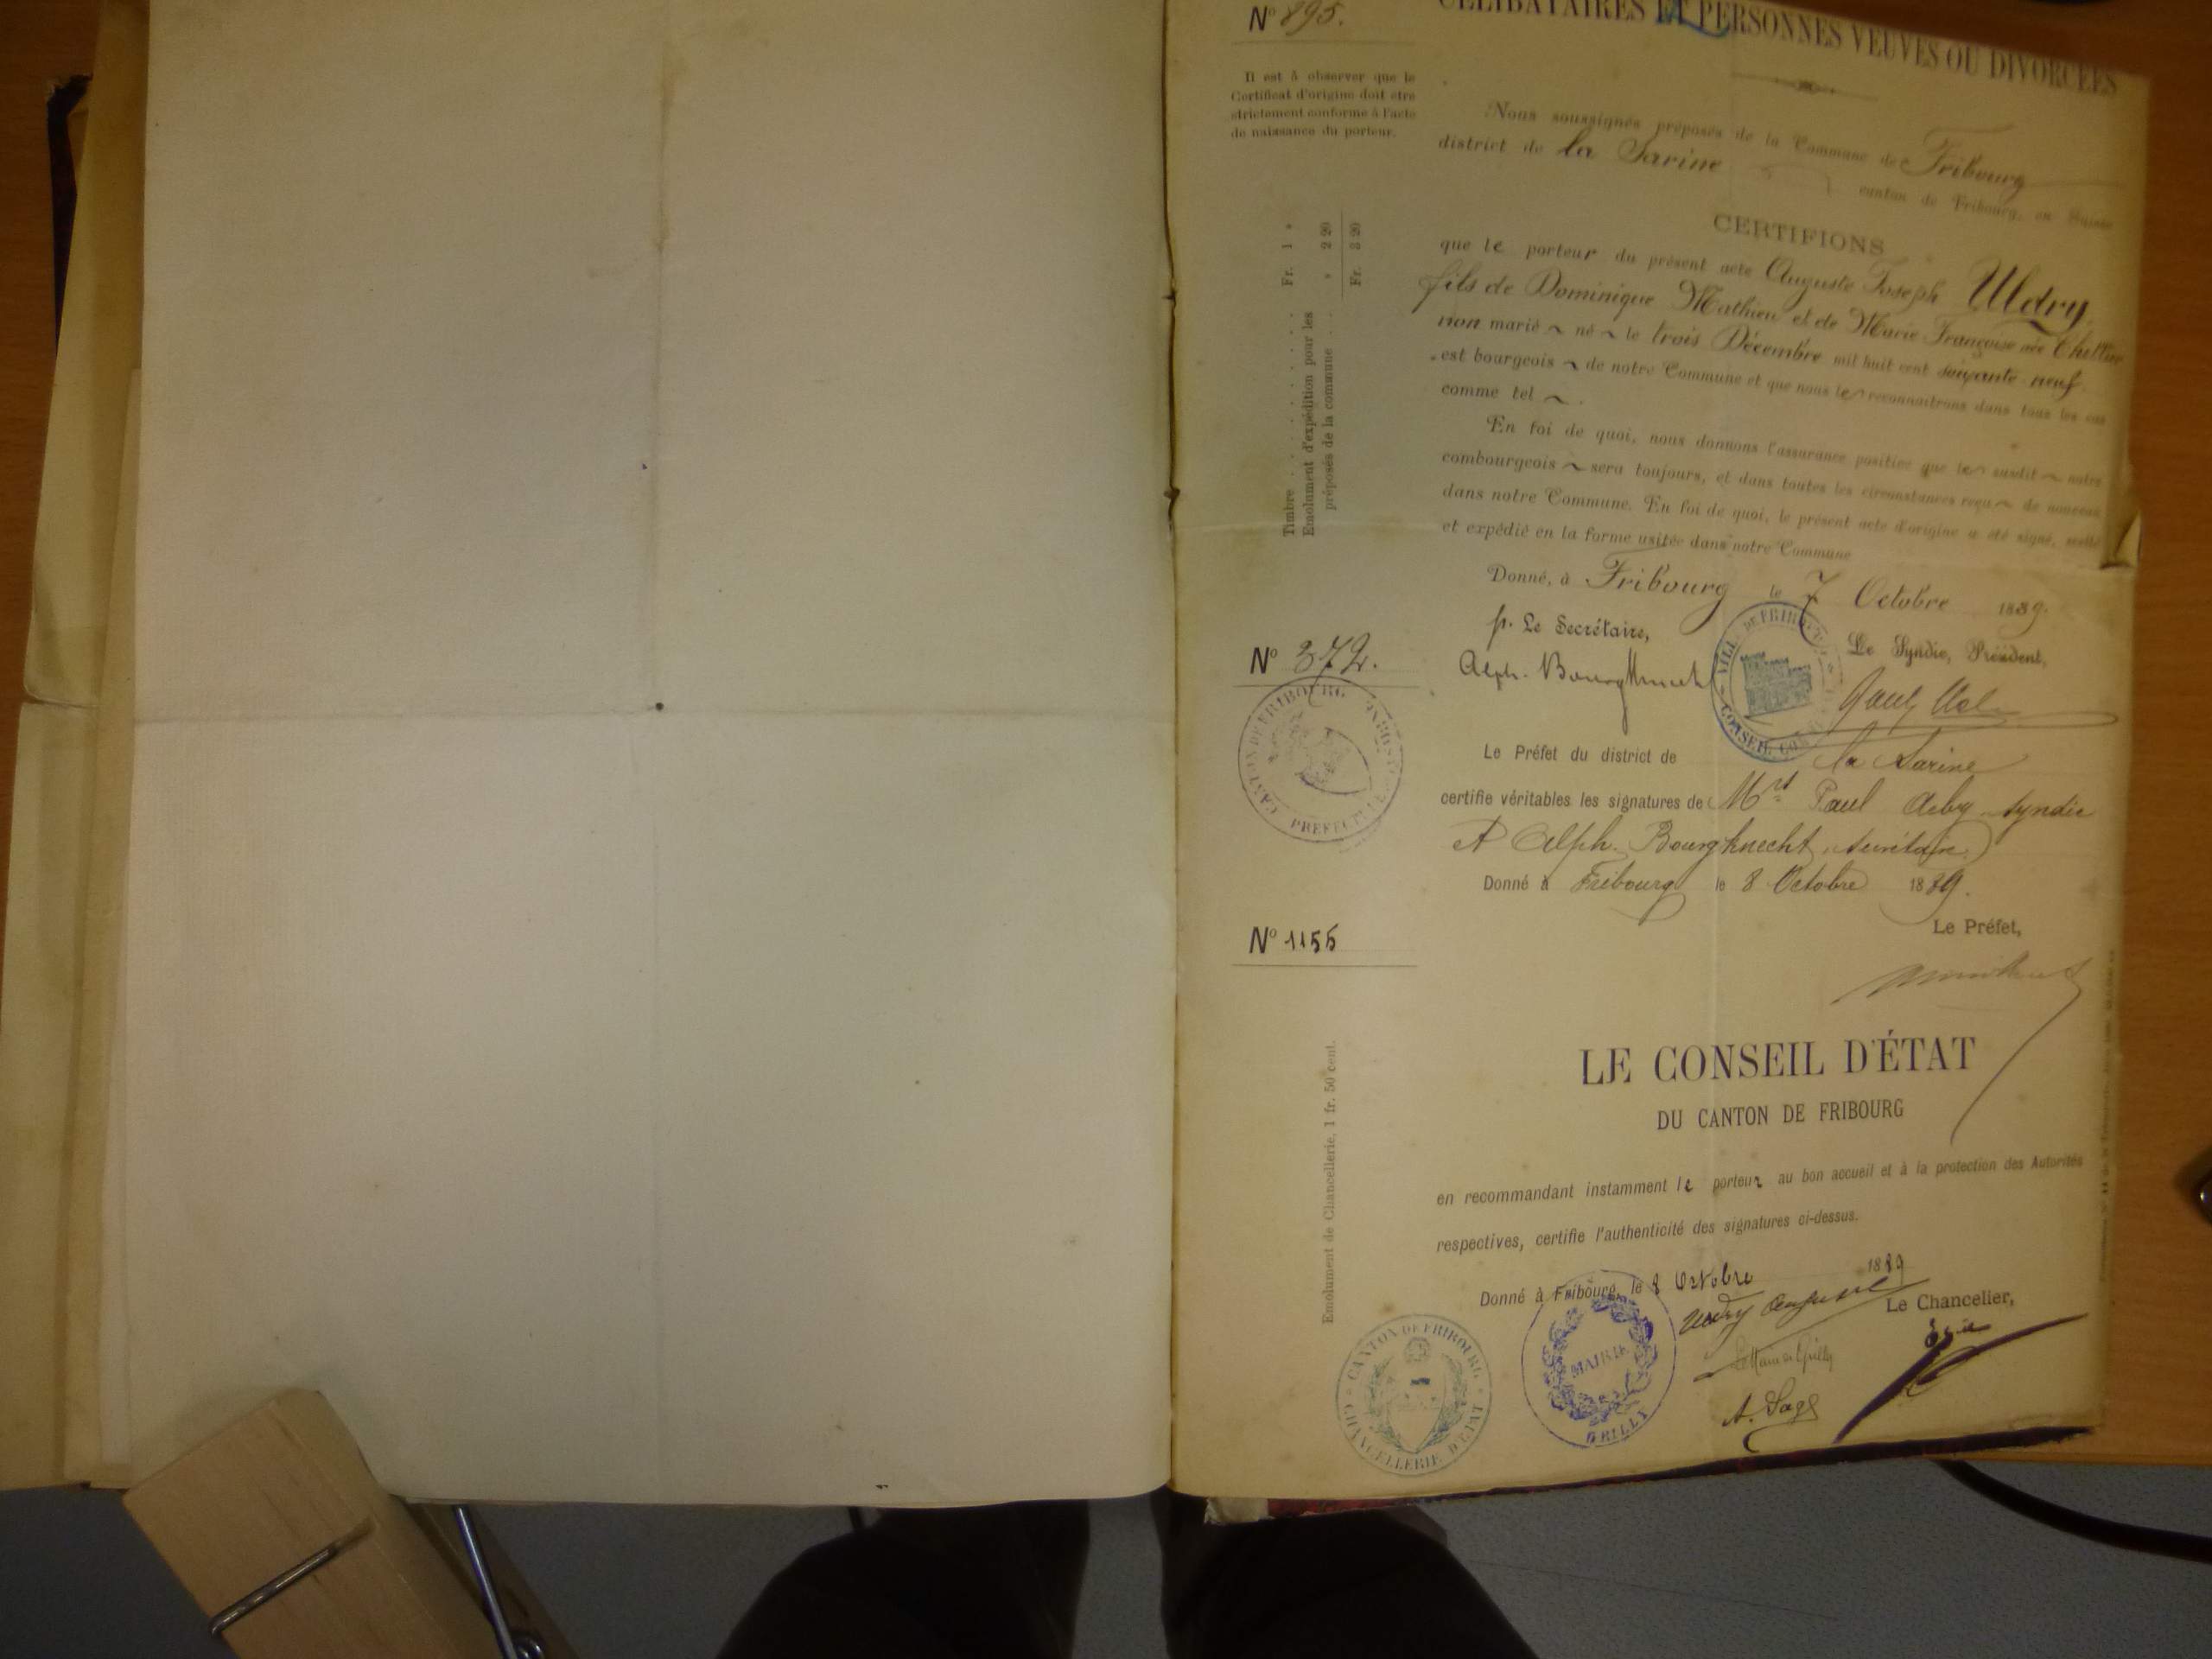 N° 895.
CÉLIBATAIRES ET PERSONNES VEUVES OU DIVORCÉES
Il est à observer que le
Certificat d'origine doit être
strictement conforme à l'acte
de naissance du porteur.
Nous soussignés préposés de la Commune de Fribourg
district de la Sarine canton de Fribourg, en Suisse
CERTIFIONS
que le porteur du présent acte Auguste Joseph Uldry,
fils de Dominique Mathieu et de Marie Françoise née
non marié né le trois Décembre mil huit cent soixante neuf.
est bourgeois de notre Commune et que nous le reconnaîtrons dans tous les cas
comme tel
En foi de quoi, nous donnons l'assurance positive que le susdit notre
combourgeois sera toujours, et dans toutes les circonstances reçu de nouveau
dans notre Commune. En foi de quoi, le présent acte d'origine a été signé, scellé
et expédié en la forme usitée dans notre Commune
Timbre . . . . . . . . . . Fr. 1 »
Emolument d'expédition pour les
préposés de la commune . . . » 2 20
Fr. 3 20
Donné, à Fribourg le 7 Octobre 1889.
p. Le Secrétaire,
Le Syndic, Président,
Alph. Bourgknecht
VILLE DE FRIBOURG
CONSEIL COMMUNAL
N° 372.
CANTON DE FRIBOURG
PRÉFECTURE
Le Préfet du district de la Sarine
certifie véritables les signatures de Mrs Paul Aeby syndic
et Alph. Bourgknecht, secrétaire
Donné à Fribourg le 8 Octobre 1889.
Le Préfet,
N° 1155
LE CONSEIL D'ÉTAT
DU CANTON DE FRIBOURG
en recommandant instamment le porteur au bon accueil et à la protection des Autorités
respectives, certifie l'authenticité des signatures ci-dessus.
Emolument de Chancellerie, 1 fr. 50 cent.
Donné à Fribourg, le 8 Octobre 1889
Uldry Auguste
Le Chancelier,
CANTON DE FRIBOURG
CHANCELLERIE D'ETAT
MAIRIE
GRILLY
Le Maire de Grilly